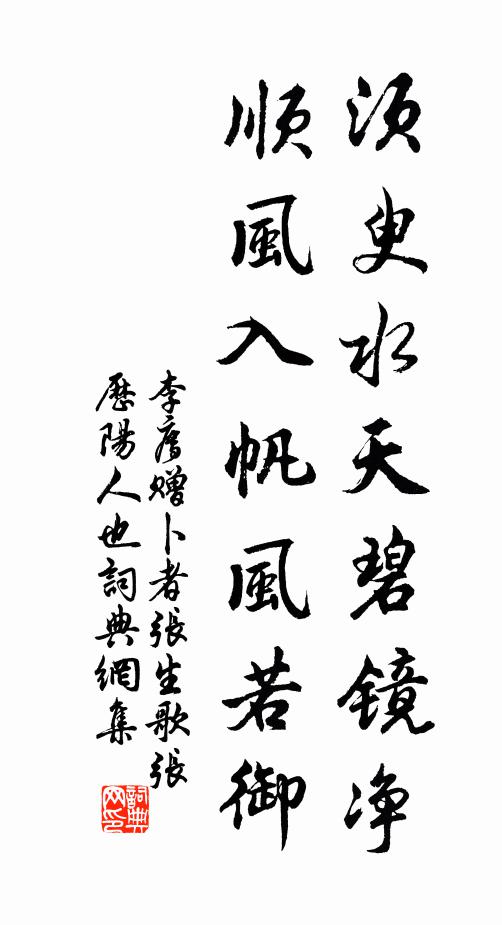 須臾水天碧鏡净
順風入帆風若御
李廌贈卜者張生歌張
歷陽人也詞典網集
詞典網印